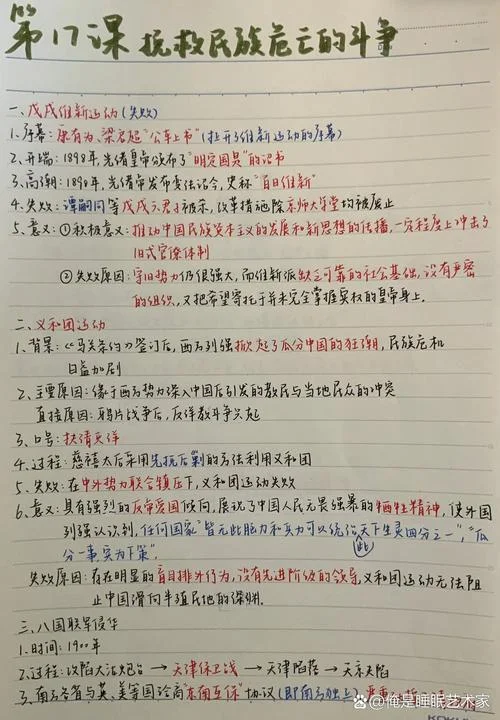 第17课 挽救民族危亡的斗争
一、戊戌维新运动(失败)
1.序幕:康有为、梁启超"公车上书"(拉开了维新运动的序幕)
2.开端:1898年,光绪皇帝颁布了"明定国是"的诏书
3.高潮:1898年,光绪帝发布变法诏令,史称"百日维新"
4.失败:谭嗣同等戊戌六君子被杀,改革措施除京师大学堂均被废止
5.意义:①积极意义:推动中国民族资本主义的发展和新思想的传播,一定程度上冲击了
旧式官僚体制
②失败原因:守旧势力仍很强大,而维新派缺乏可靠的社会基础,没有严密
的组织,又把希望寄托于并未完全掌握实权的皇帝身上.
二、义和团运动
1.背景:《马关条约》签订后,西方列强掀起了瓜分中国的狂潮,民族危机
日益加剧
2.主要原因:缘于西方势力深入中国后引发的教民与当地民众的冲突
直接原因:鸦片战争后,反洋教斗争兴起
3.口号:扶清灭洋
4.过程:慈禧太后采用先抚后剿的方法利用义和团
5.失败:在中外势力联合镇压下,义和团运动失败
6.意义:具有强烈的反帝爱国倾向,展现了中国人民无畏强暴的牺牲精神,使外国
列强认识到,任何国家"皆无此脑力和兵力可以统治天下生灵四分之一","瓜
此
分一事,实为下策".
失败原因:存在明显的盲目排外行为,没有先进阶级的领导,义和团运动无法阻
止中国滑向半殖民地的深渊.
三、八国联军侵华
1.时间:1900年
2.过程:攻陷大沽炮台→天津保卫战→天津陷落→天京失陷
3.南方各省与英、美等国洽商"东南互保"协议(即南方独立)
头条 @俺是睡眠艺术家